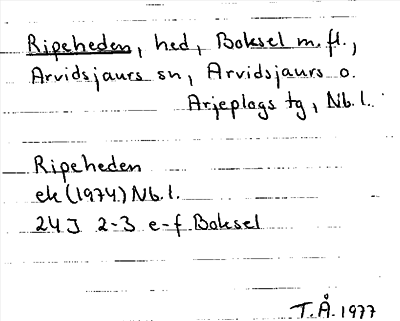 Ripeheden, hed, Boksel m. fl.,
Arvidsjaurs sn, Arvidsjaurs o.
Arjeplogs tg, Nb. l.
Ripeheden
ek (1974) Nb. l.
24J 2-3 e-f Boksel
T.Å. 1977